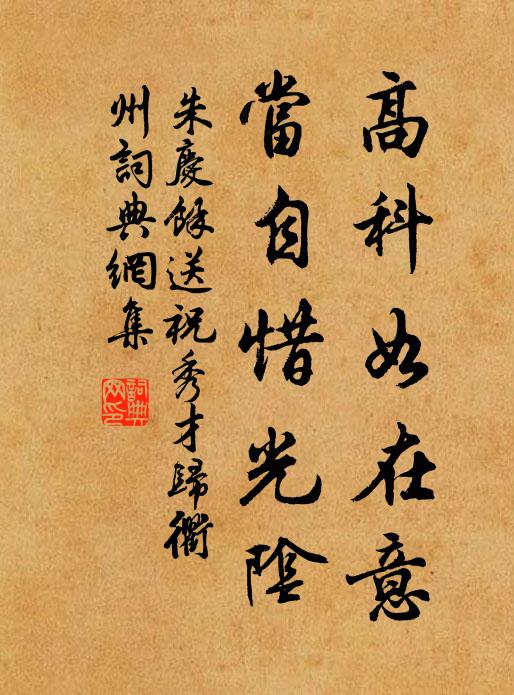 高科如在意
當自惜光陰
朱慶餘送祝秀才歸衢
州詞典網集
詞典網印